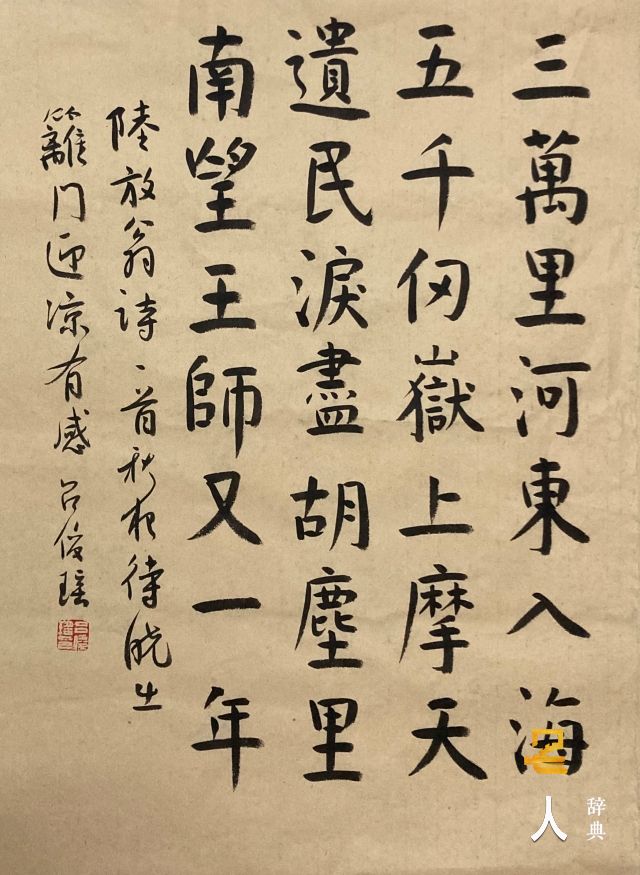 三萬里河東入海
五千仞嶽上摩天
遺民淚盡胡塵里
南望王師又一年
陸放翁詩一首秋夜待曉出
籬門迎凉有感 呂俊瑤
名人
辞典